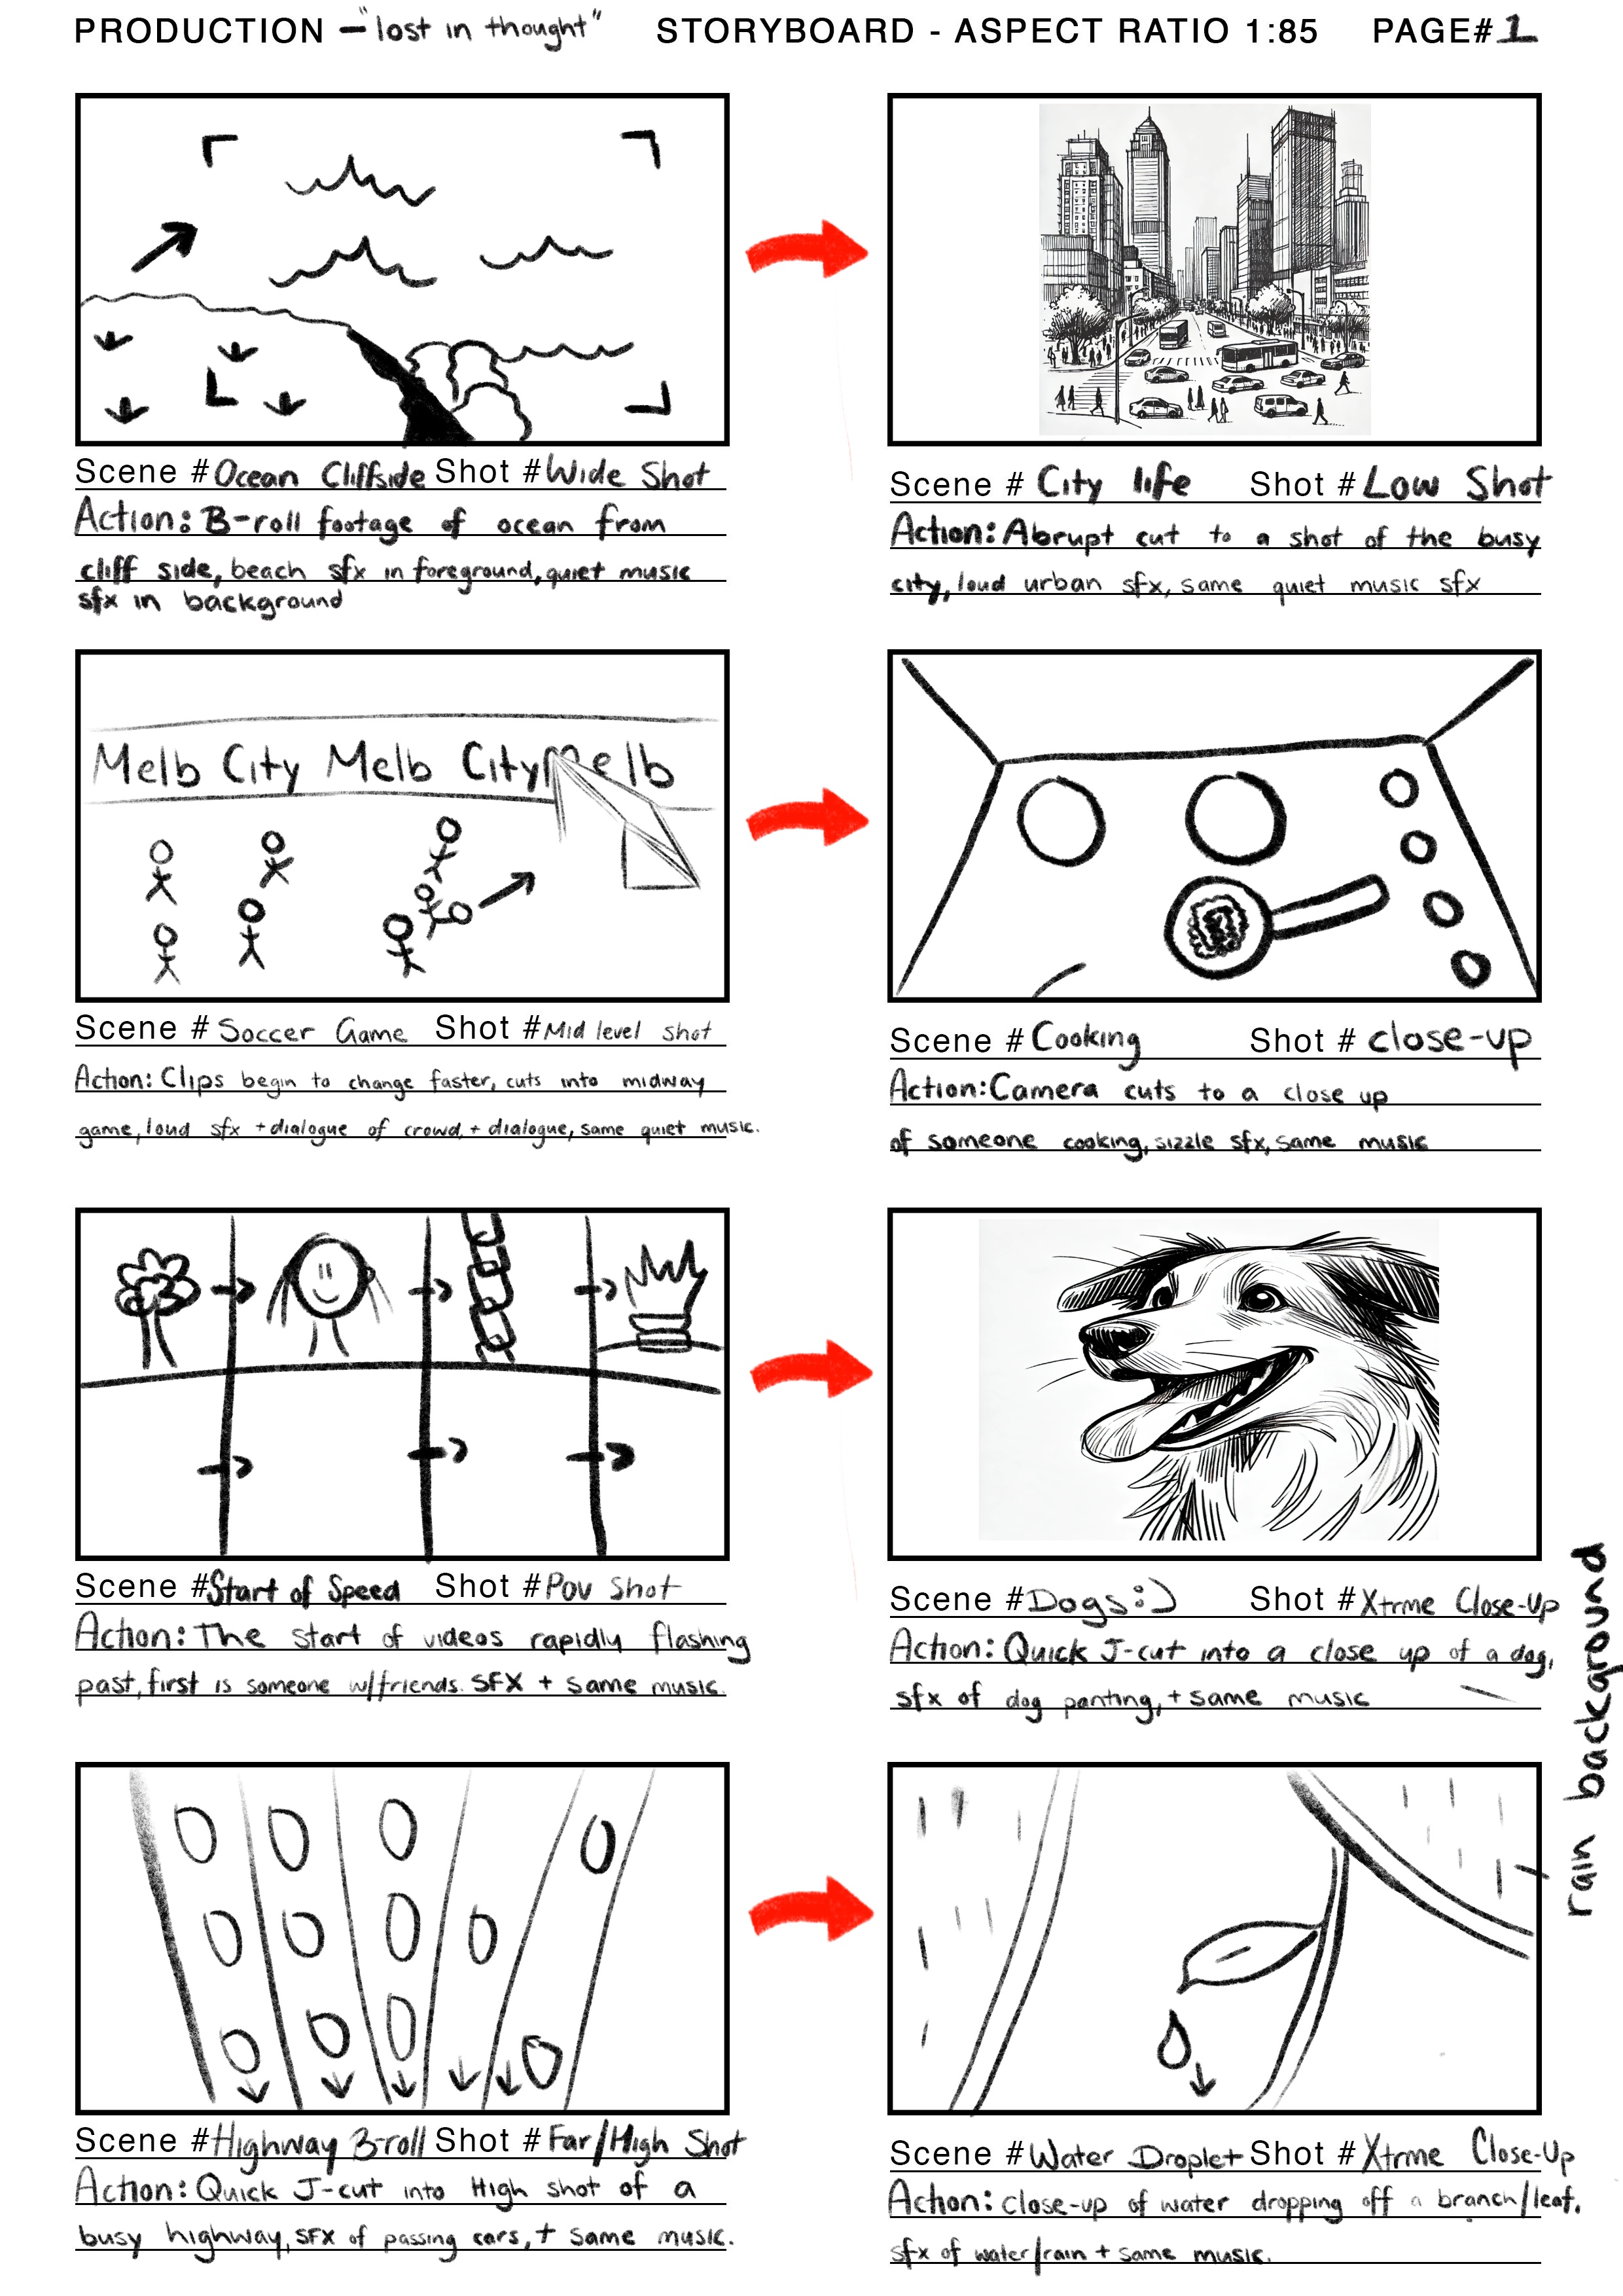 PRODUCTION - "lost in thought" STORYBOARD - ASPECT RATIO 1:85 PAGE# 1
Scene # Ocean Cliffside Shot # Wide Shot
Action: B-roll footage of ocean from
cliff side, beach sfx in foreground, quiet music
sfx in background
Scene # City life Shot # Low Shot
Action: Abrupt cut to a shot of the busy
city, loud urban sfx, same quiet music sfx
Melb City Melb City Melb
Scene # Soccer Game Shot # Mid level shot
Action: Clips begin to change faster, cuts into midway
game, loud sfx + dialogue of crowd, + dialogue, same quiet music.
Scene # Cooking Shot # close-up
Action: Camera cuts to a close up
of someone cooking, sizzle sfx, same music
Scene # Start of Speed Shot # Pov Shot
Action: The start of videos rapidly flashing
past, first is someone w/friends. SFX + same music.
Scene # Dogs :) Shot # Xtrme Close-Up
Action: Quick J-cut into a close up of a dog,
sfx of dog panting, + same music
rain background
Scene # Highway B-roll Shot # Far/High Shot
Action: Quick J-cut into High shot of a
busy highway, SFX of passing cars, + same music.
Scene # Water Droplet Shot # Xtrme Close-Up
Action: close-up of water dropping off a branch/leaf.
sfx of water/rain + same music.